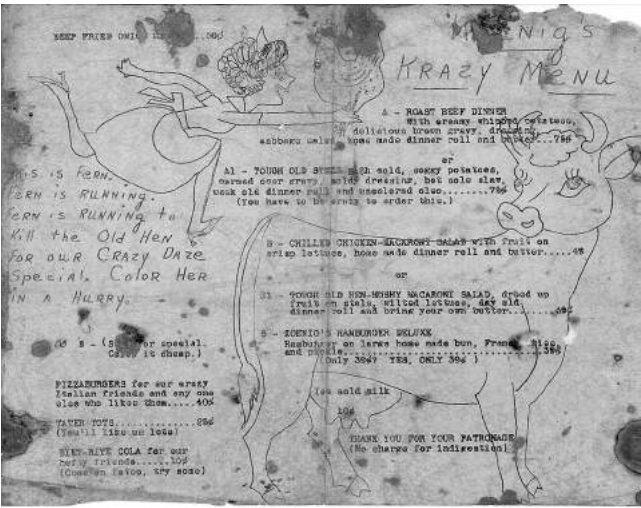 BEEF FRIED ONION .....50¢
Koenig's
KRAZY MENU
A - ROAST BEEF DINNER
With creamy whipped potatoes,
delicious brown gravy, dressing,
cabbage salad, home made dinner roll and butter...75¢
or
A1 - TOUGH OLD STEER with cold, soggy potatoes,
warmed over gravy, moldy dressing, hot cole slaw,
week old dinner roll and uncolored oleo........75¢
(You have to be crazy to order this.)
This is Fern.
Fern is Running.
Fern is Running to
Kill the Old Hen
For our Crazy Daze
Special. Color Her
in a Hurry.
B - CHILLED CHICKEN-MACARONI SALAD with fruit on
crisp lettuce, home made dinner roll and butter.....
or
B1 - TOUGH OLD HEN-MUSHY MACARONI SALAD, dried up
fruit on stale, wilted lettuce, day old
dinner roll and bring your own butter
S - KOENIG'S HAMBURGER DELUXE
Hamburger on large home made bun, French fries,
and pickle........39¢
(Only 39¢? YES, ONLY 39¢ )
S - (S for special.
Color it cheap.)
PIZZABURGERS for our crazy
Italian friends and any one
else who likes them.....40¢
TATER TOTS........25¢
(You'll like um lots)
DIET-RITE COLA for our
hefty friends......10¢
(Come on Fatso, try some)
Ice cold milk
10¢
THANK YOU FOR YOUR PATRONAGE
(No charge for indigestion)